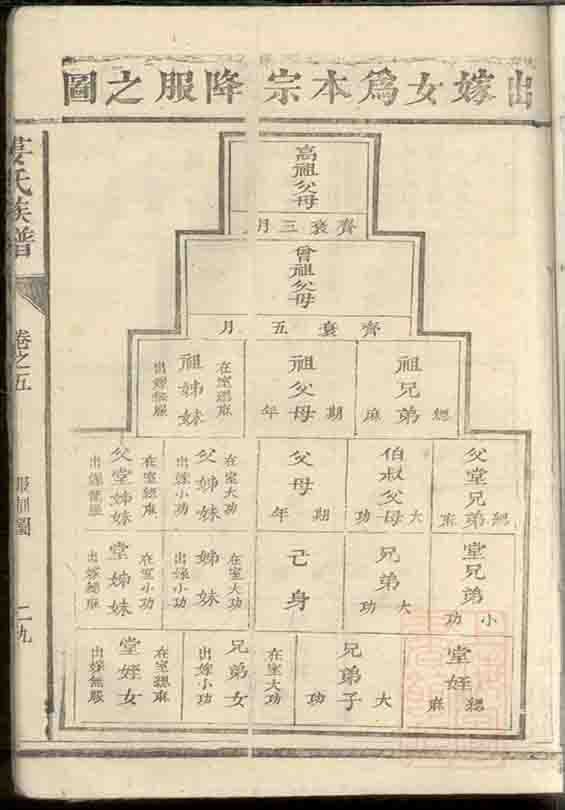 出嫁女爲本宗降服之圖
高祖父母
齊衰三月
曾祖父母
齊衰五月
祖兄弟
緦麻
祖父母
期年
在室緦麻
祖姊妹
出嫁無服
父堂兄弟
緦麻
伯叔父母
大功
父母
期年
在室大功
父姊妹
出嫁小功
在室緦麻
父堂姊妹
出嫁無服
堂兄弟
小功
兄弟
大功
己身
在室大功
姊妹
出嫁小功
在室小功
堂姊妹
出嫁緦麻
堂姪
緦麻
兄弟子
大功
在室大功
兄弟女
出嫁小功
在室緦麻
堂姪女
出嫁無服
氏族譜
卷之五
服制圖
二九